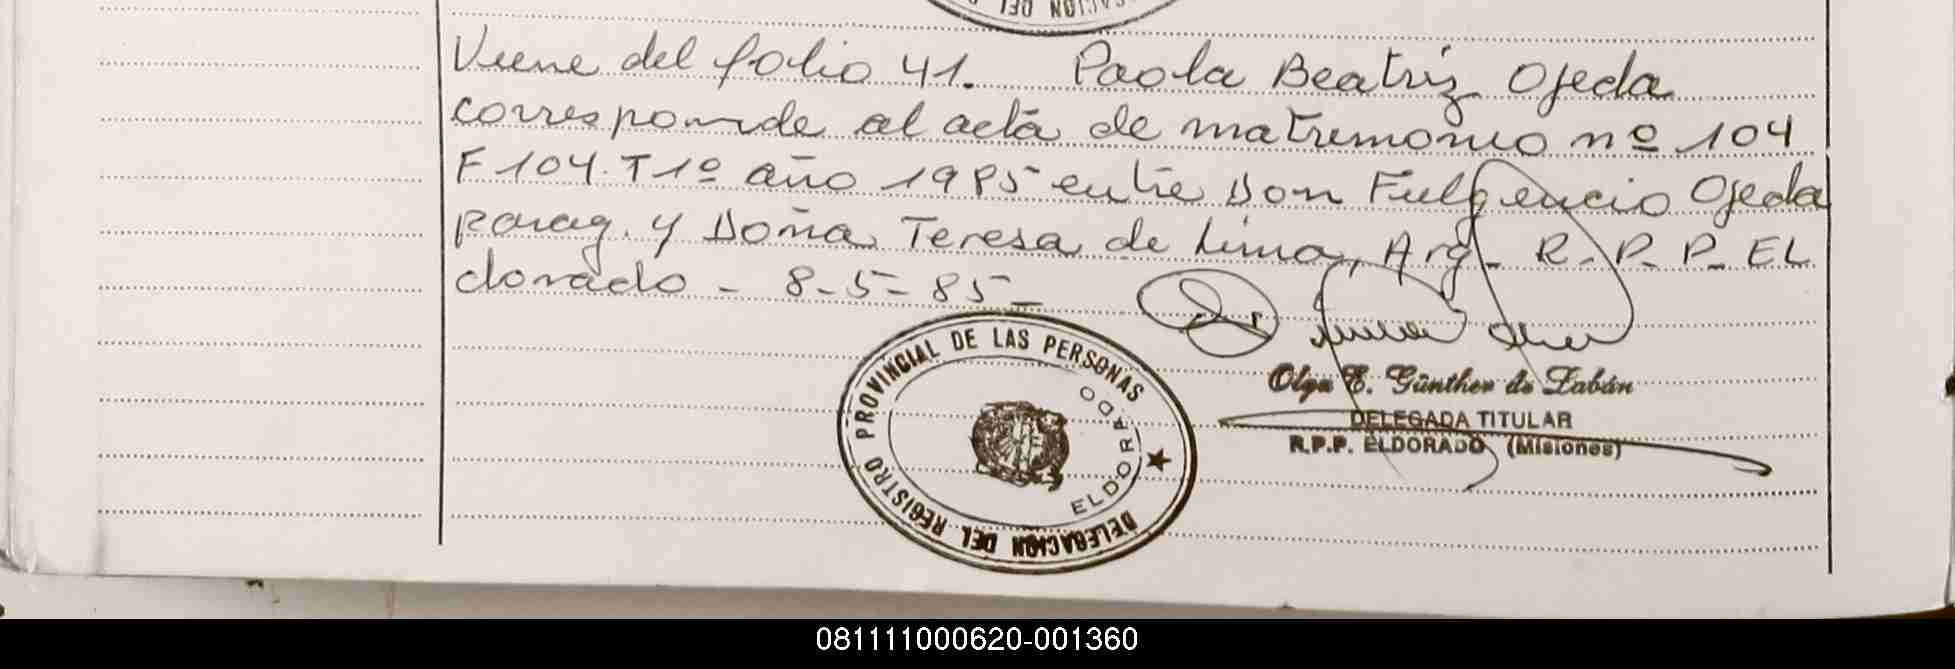 Viene del folio 41. Paola Beatriz Ojeda
corresponde al acta de matrimonio nº 104
F 104. T1º año 1985 entre Don Fulgencio Ojeda
parag. y Doña Teresa de Lima, Arg_ R_P_P_ EL
dorado - 8-5-85_
DELEGACION DEL REGISTRO PROVINCIAL DE LAS PERSONAS
ELDORADO
Olga E. Günther de Labán
DELEGADA TITULAR
R.P.P. ELDORADO (Misiones)
081111000620-001360